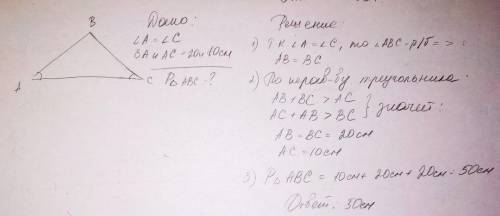 B
A
C
Дано:
∠A = ∠C
BA и AC = 20 и 10см
P△ABC - ?
Решение:
1) Т.к ∠A = ∠C, то △ABC - р/б = >
AB = BC
2) По нерав-ву треугольника:
AB + BC > AC
AC + AB > BC } значит:
AB = BC = 20см
AC = 10см
3) P△ABC = 10см + 20см + 20см = 50см
Ответ: 50см